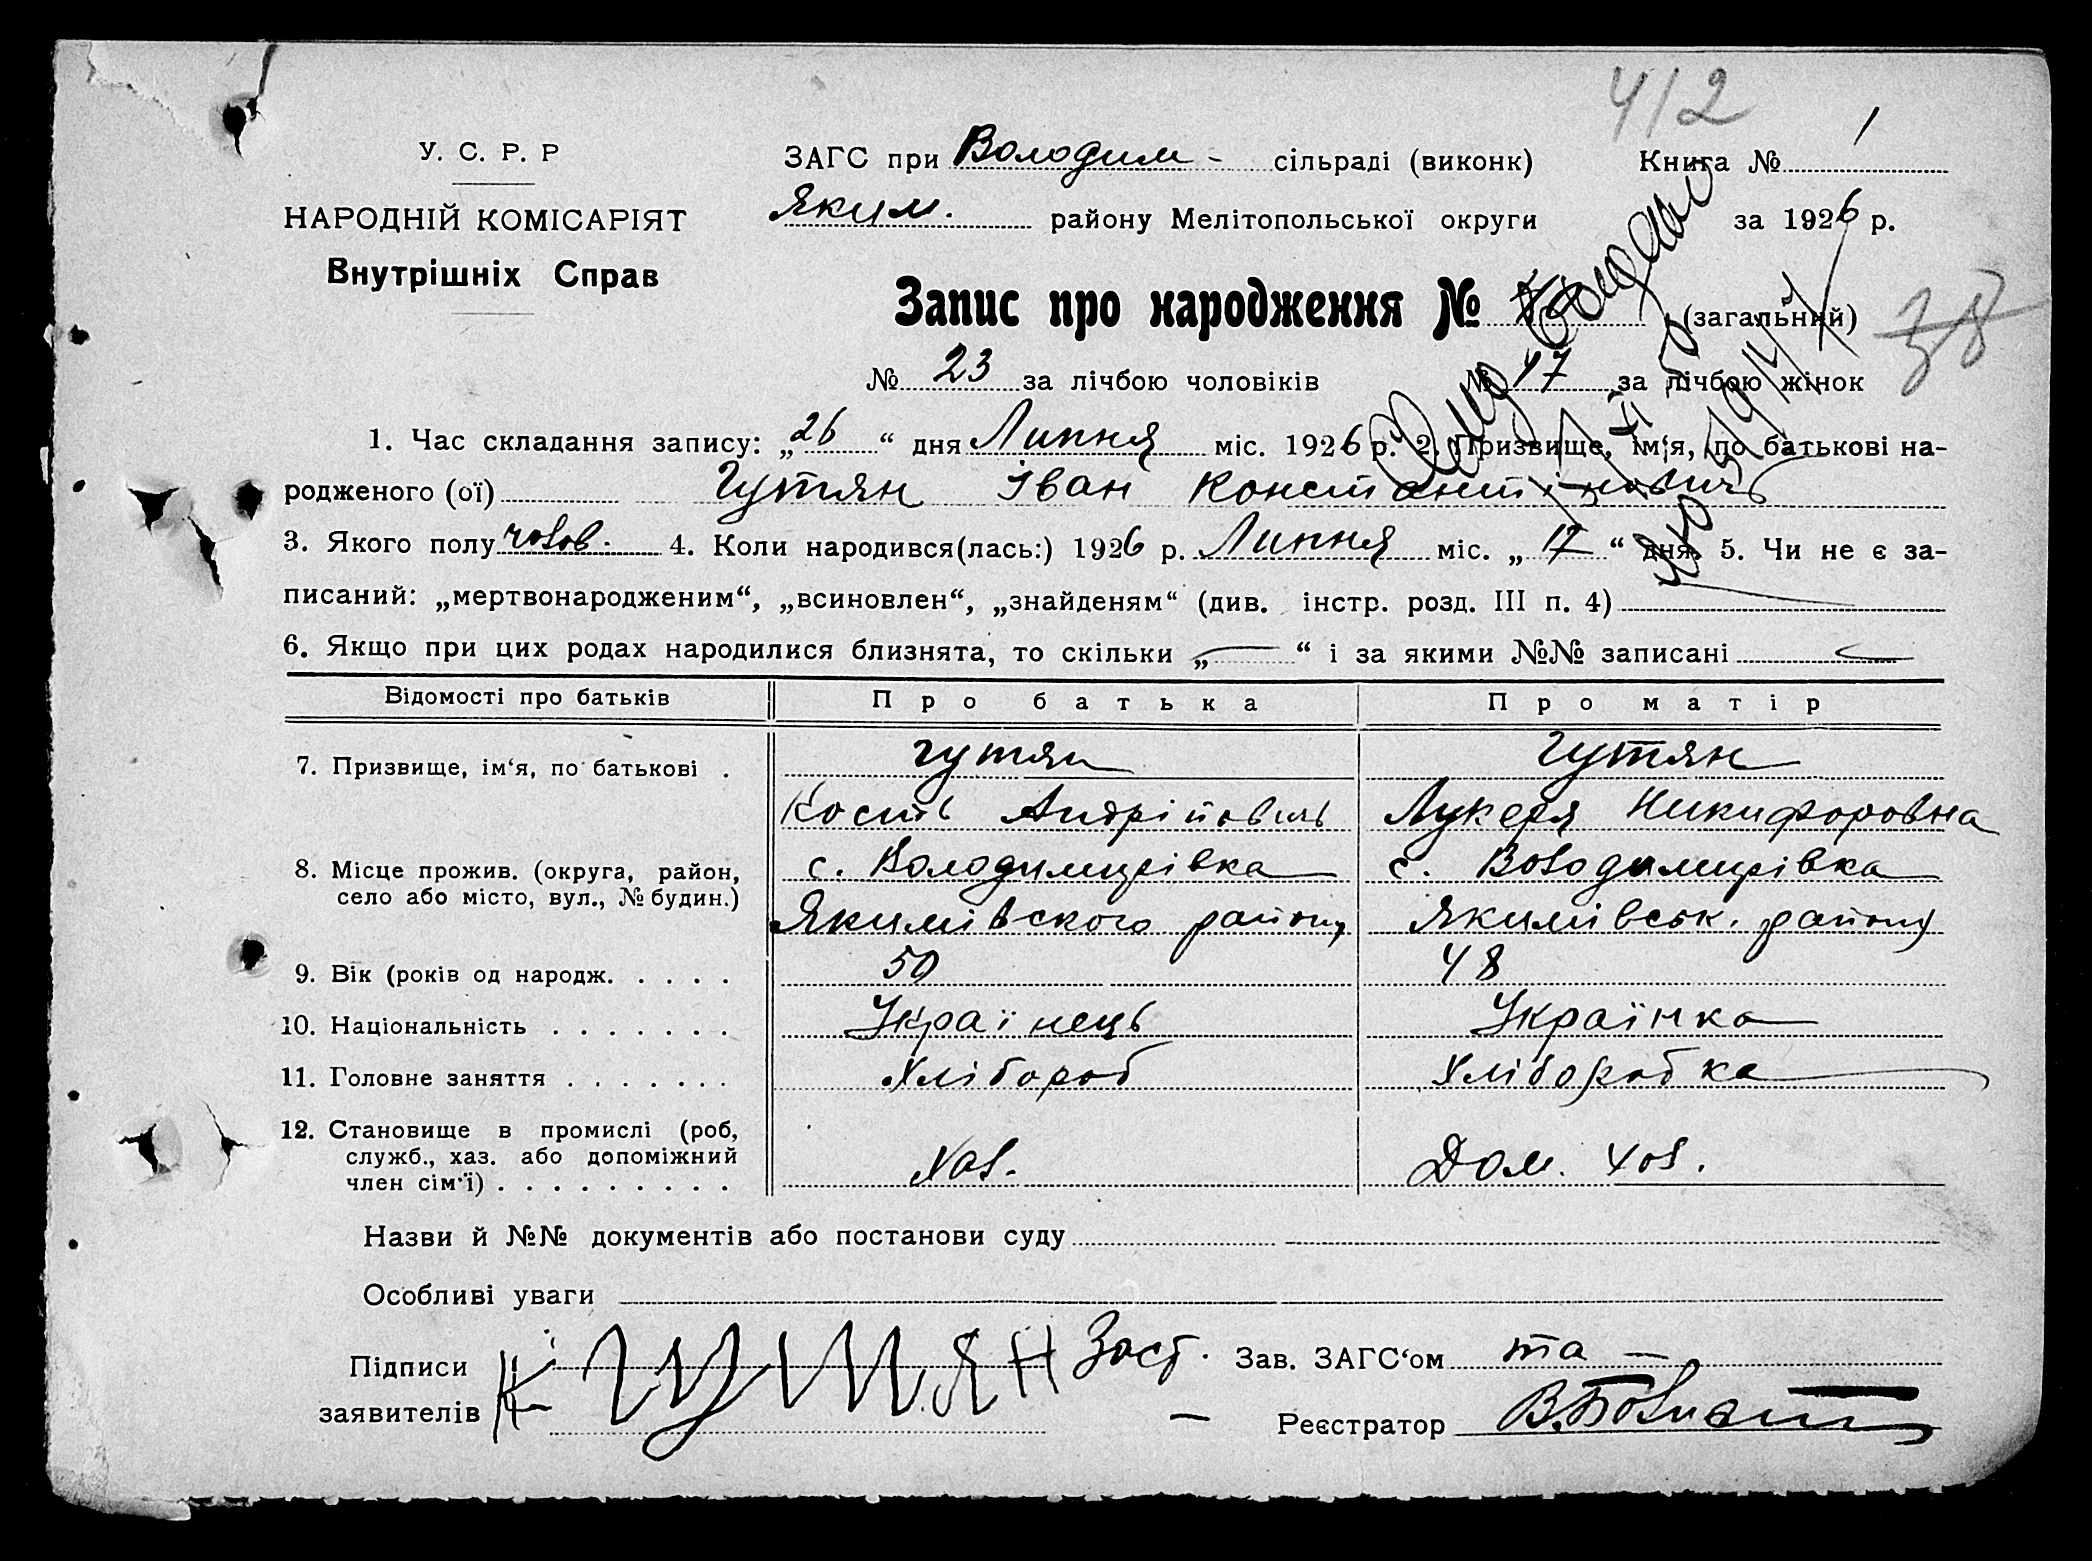 412
У. С. Р. Р
НАРОДНІЙ КОМІСАРІЯТ
Внутрішніх Справ
ЗАГС при Володим - сільраді (виконк)
Книга № 1
Яким. району Мелітопольської округи
за 1926 р.
Запис про народження № (загальний)
38
№ 23 за лічбою чоловіків № 17 за лічбою жінок
1. Час складання запису: „26“ дня Липня міс. 1926 р. 2. Призвище, ім‘я, по батькові на-
родженого (ої) Гутян Іван Константінович
3. Якого полу чолов. 4. Коли народився(лась:) 1926 р. Липня міс. „17“ дня. 5. Чи не є за-
писаний: „мертвонародженим“, „всиновлен“, „знайденям“ (див. інстр. розд. III п. 4)
6. Якщо при цих родах народилися близнята, то скільки „—“ і за якими №№ записані —
Відомості про батьків Про батька Про матір
7. Призвище, ім‘я, по батькові . Гутян Гутян
Кость Андрійович Лукеря Никифоровна
8. Місце прожив. (округа, район, село або місто, вул., № будин.) с. Володимирівка с. Володимирівка
Якимівского району Якимівськ. району
9. Вік (років од народж. . . . . 50 48
10. Національність . . . . . . . Українець Українка
11. Головне заняття . . . . . . . Хлібороб Хлiборобка
12. Становище в промислі (роб,
служб., хаз. або допоміжний
член сім‘ї) . . . . . . . . . Хаз. Дом. хоз.
Назви й №№ документів або постанови суду
Особливі уваги
Підписи
заявителів К. Гутян
Заст. Зав. ЗАГС‘ом та —
— Реєстратор